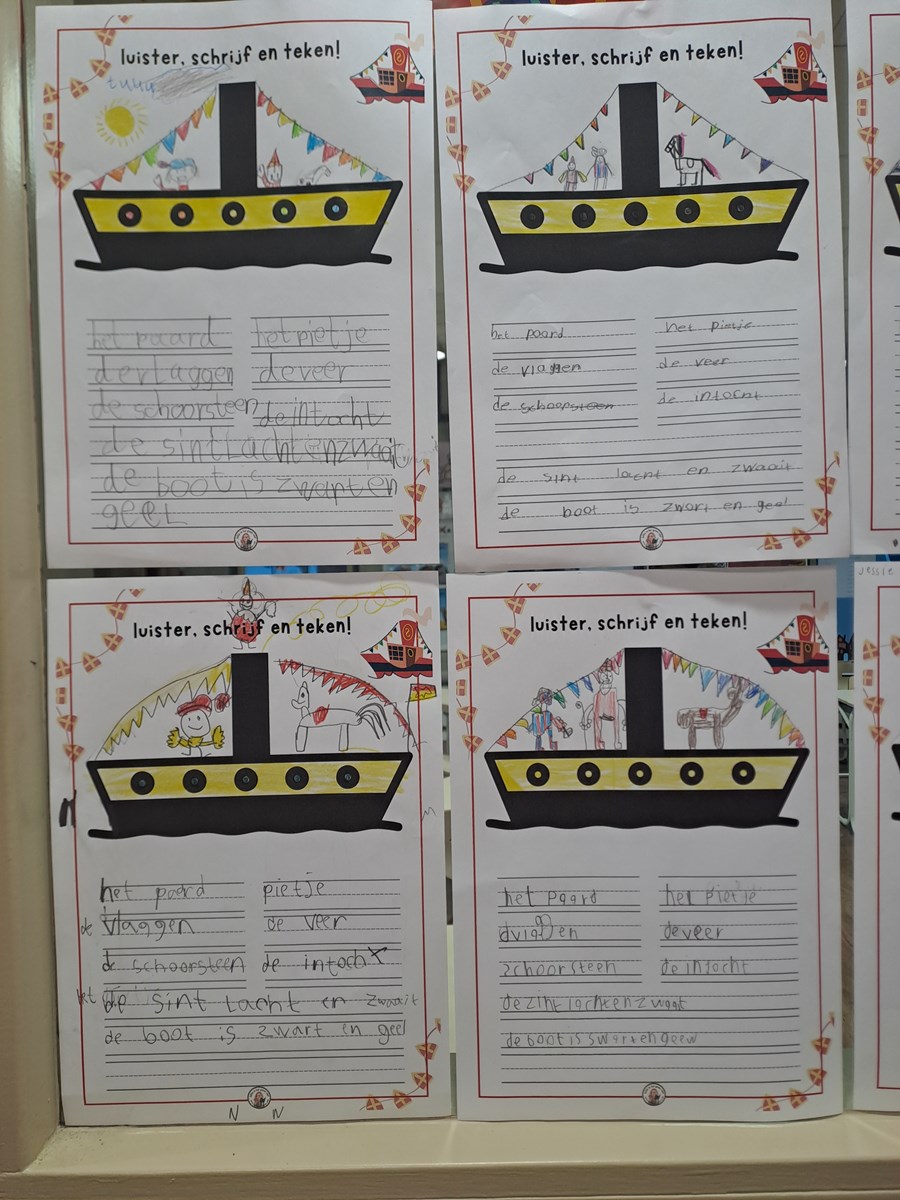 luister, schrijf en teken!
het paard
het pietje
de vlaggen
de veer
de schoorsteen
de intocht
de sint lacht en zwaait
de boot is zwart en
geel
luister, schrijf en teken!
het paard
het pietje
de vlaggen
de veer
de schoopsteen
de intocht
de sint lacht en zwaait
de boot is zwart en geel
luister, schrijf en teken!
het paard
pietje
de vlaggen
de veer
de schoorsteen
de intocht
de sint lacht en zwaait
de boot is zwart en geel
N N
luister, schrijf en teken!
het paard
het pietje
dvlaggen
deveer
schoorsteen
de intocht
de zint lacht en zwaat
de boot is swart en geew
Jessie